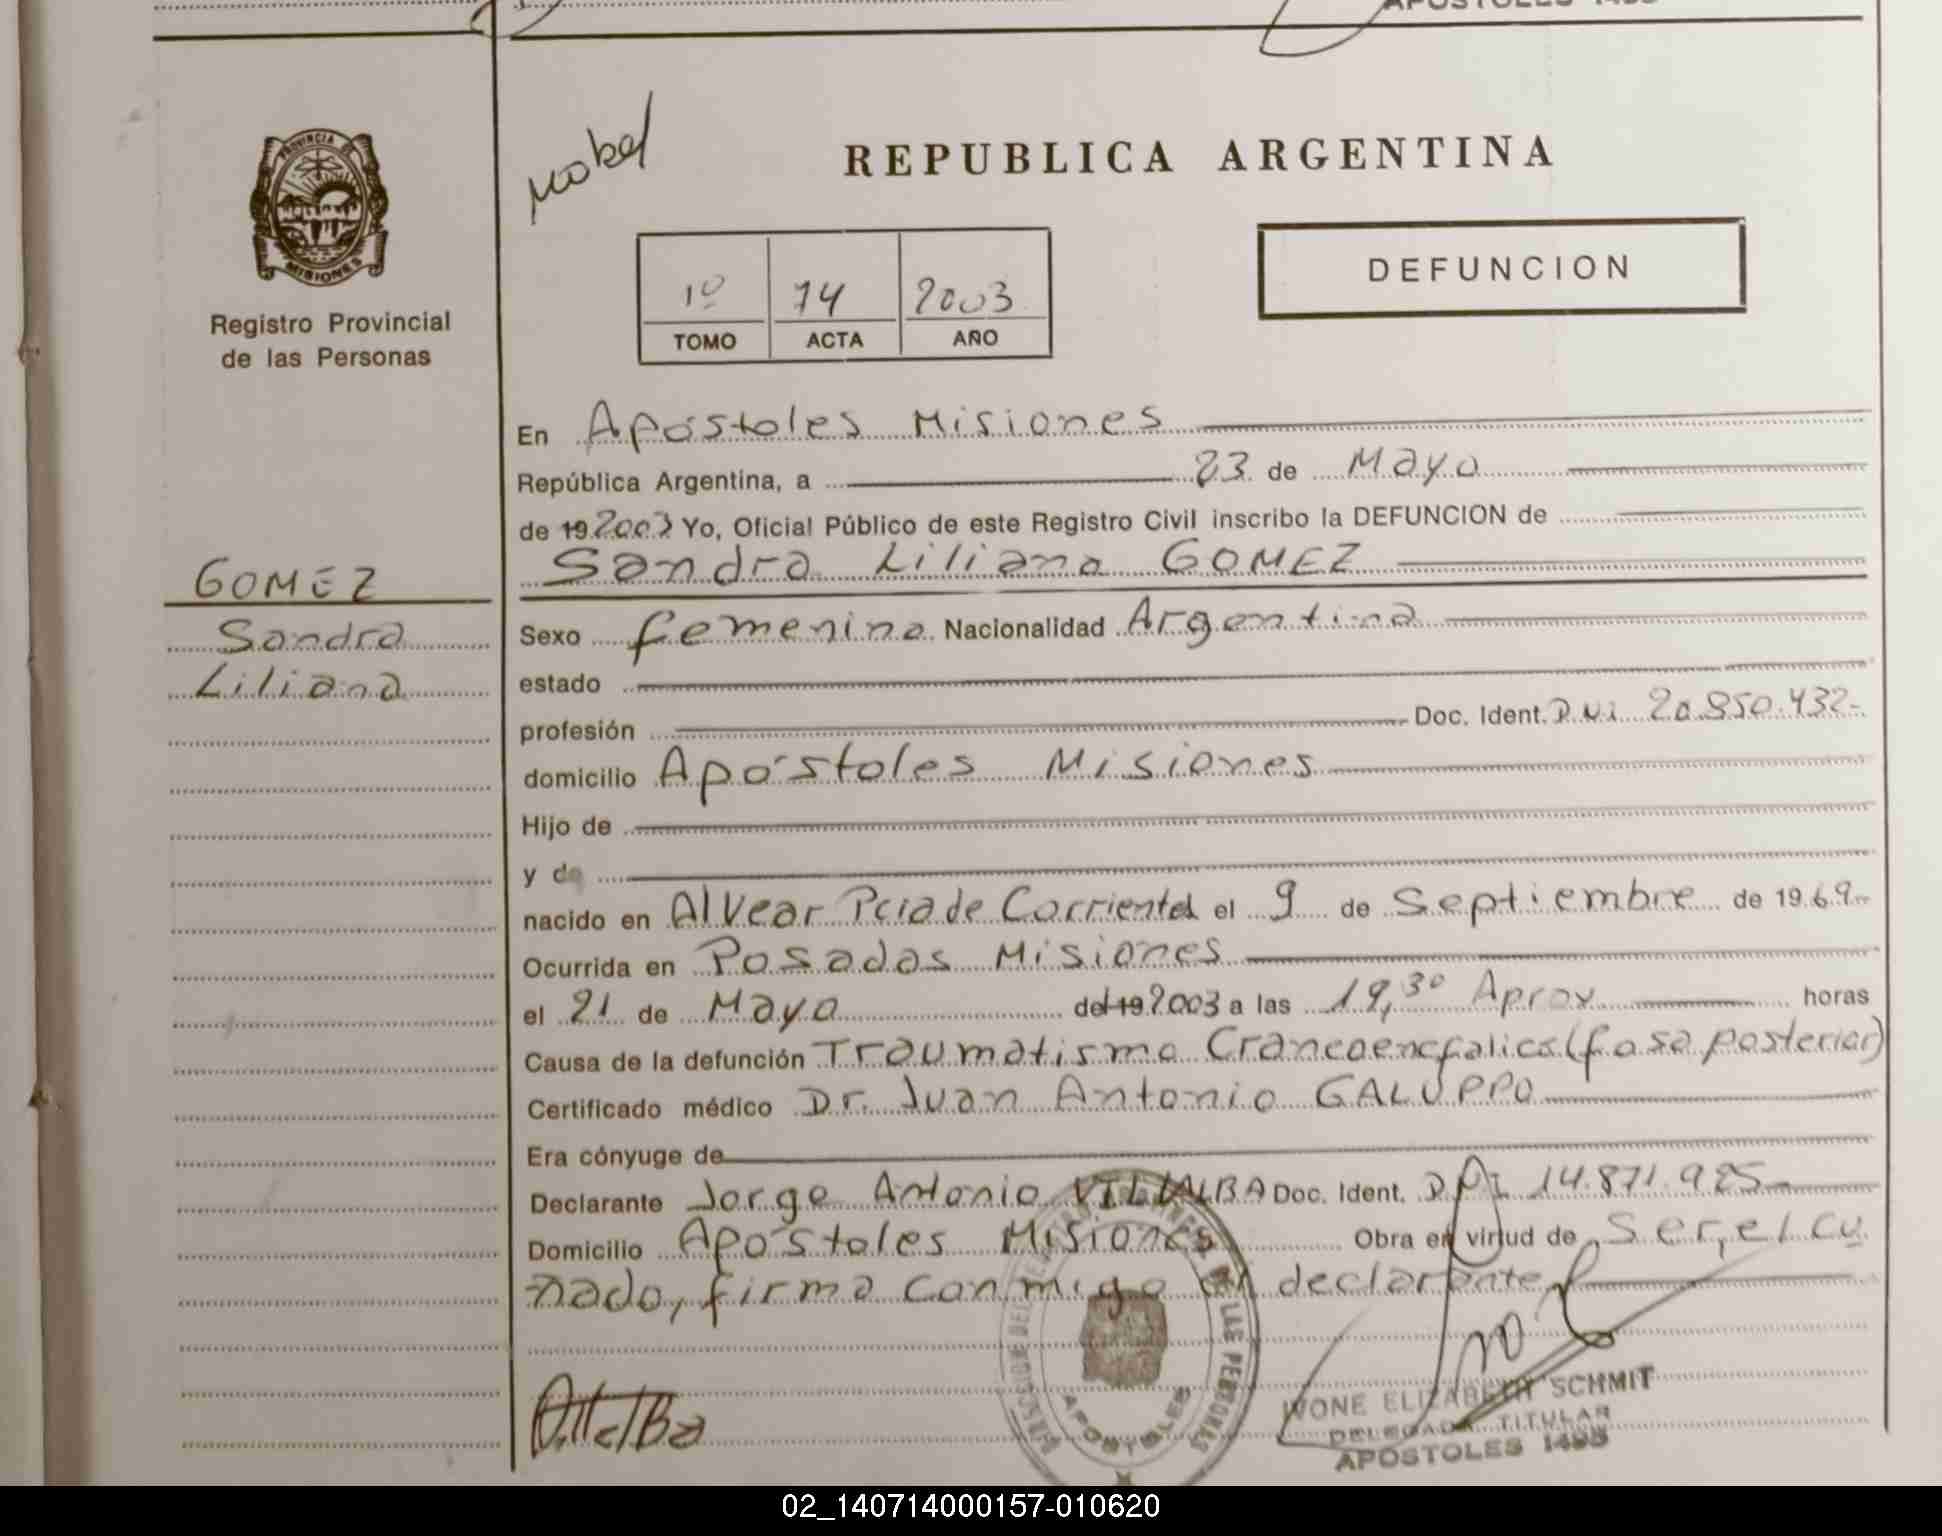 APOSTOLES 1495
PROVINCIA DE
MISIONES
Registro Provincial
de las Personas
REPUBLICA ARGENTINA
DEFUNCION
1º 74 2003
TOMO ACTA AÑO
En Apóstoles Misiones
República Argentina, a 23 de Mayo
de 19 2003 Yo, Oficial Público de este Registro Civil inscribo la DEFUNCION de
GOMEZ
Sandra
Liliana
Sandra Liliana GOMEZ
Sexo femenino Nacionalidad Argentina
estado
profesión Doc. Ident. D.N.i 20.850.432-
domicilio Apóstoles Misiones
Hijo de
y de
nacido en Alvear Pcia de Corrientes el 9 de Septiembre de 1969
Ocurrida en Posadas Misiones
el 21 de Mayo del 19 2003 a las 19,30 Aprox horas
Causa de la defunción Traumatismo Craneoencefalico (fosa posterior)
Certificado médico Dr. Juan Antonio GALUPPO
Era cónyuge de
Declarante Jorge Antonio VILLALBA Doc. Ident. DNI 14.871.925
Domicilio Apóstoles Misiones Obra en virtud de Ser, el cu
ñado, firma conmigo el declarante
DE LAS PERSONAS
APOSTOLES
IVONE ELIZABETH SCHMIT
DELEGADA TITULAR
APOSTOLES 1495
02_140714000157-010620